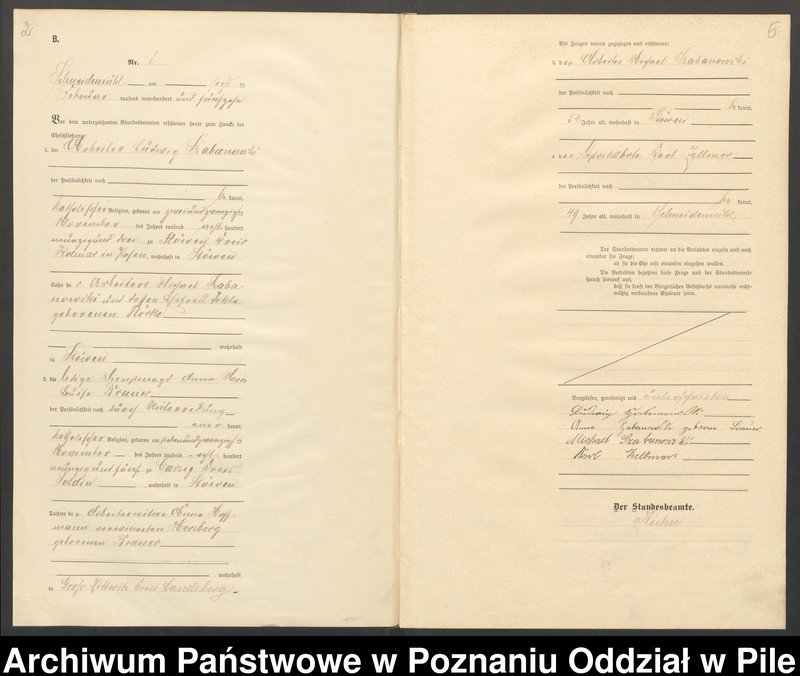 2
B.
Nr. 2
Schneidemühl am
Februar tausend neunhundert und fünfzehn
Vor dem unterzeichneten Standesbeamten erschienen heute zum Zwecke der
Eheschließung:
1. der Arbeiter Ludwig Szabanowski
der Persönlichkeit nach
be kannt,
katholischer Religion, geboren am zweiundzwanzigsten
November des Jahres tausend acht hundert
neunzig und drei zu Stöwen Kreis
Kolmar in Posen, wohnhaft in Stöwen
Sohn des Arbeiters Michael Szaba-
nowski und dessen Ehefrau Thekla
geborenen
wohnhaft
in Stöwen
2. die ledige Dienstmagd Anna Marie
Luise Krauer
der Persönlichkeit nach durch Unterredung
aner kannt,
katholischer Religion, geboren am siebenundzwanzigsten
November des Jahres tausend acht hundert
neunzig und fünf zu Carzig Kreis
Soldin, wohnhaft in Stöwen
Tochter der Arbeiterwitwe Anna Hoff-
mann verwitweten Herzberg
geborenen Krauer
wohnhaft
in Groß Kreis Landsberg
5
Als Zeugen waren zugezogen und erschienen:
3. der Arbeiter Michael Szabanowski
der Persönlichkeit nach
be kannt,
Jahre alt, wohnhaft in Stöwen
4. der Karl Zellmer
der Persönlichkeit nach
be kannt,
49 Jahre alt, wohnhaft in Schneidemühl
Der Standesbeamte richtete an die Verlobten einzeln und nach
einander die Frage:
ob sie die Ehe mit einander eingehen wollen.
Die Verlobten bejahten diese Frage und der Standesbeamte
sprach hierauf aus,
daß sie kraft des Bürgerlichen Gesetzbuchs nunmehr recht-
mäßig verbundene Eheleute seien.
Vorgelesen, genehmigt und unterschrieben
Ludwig Szabanowski
Anna Szabanowski geborene Krauer
Michael Szabanowski
Karl Zellmer
Der Standesbeamte.
Archiwum Państwowe w Poznaniu Oddział w Pile